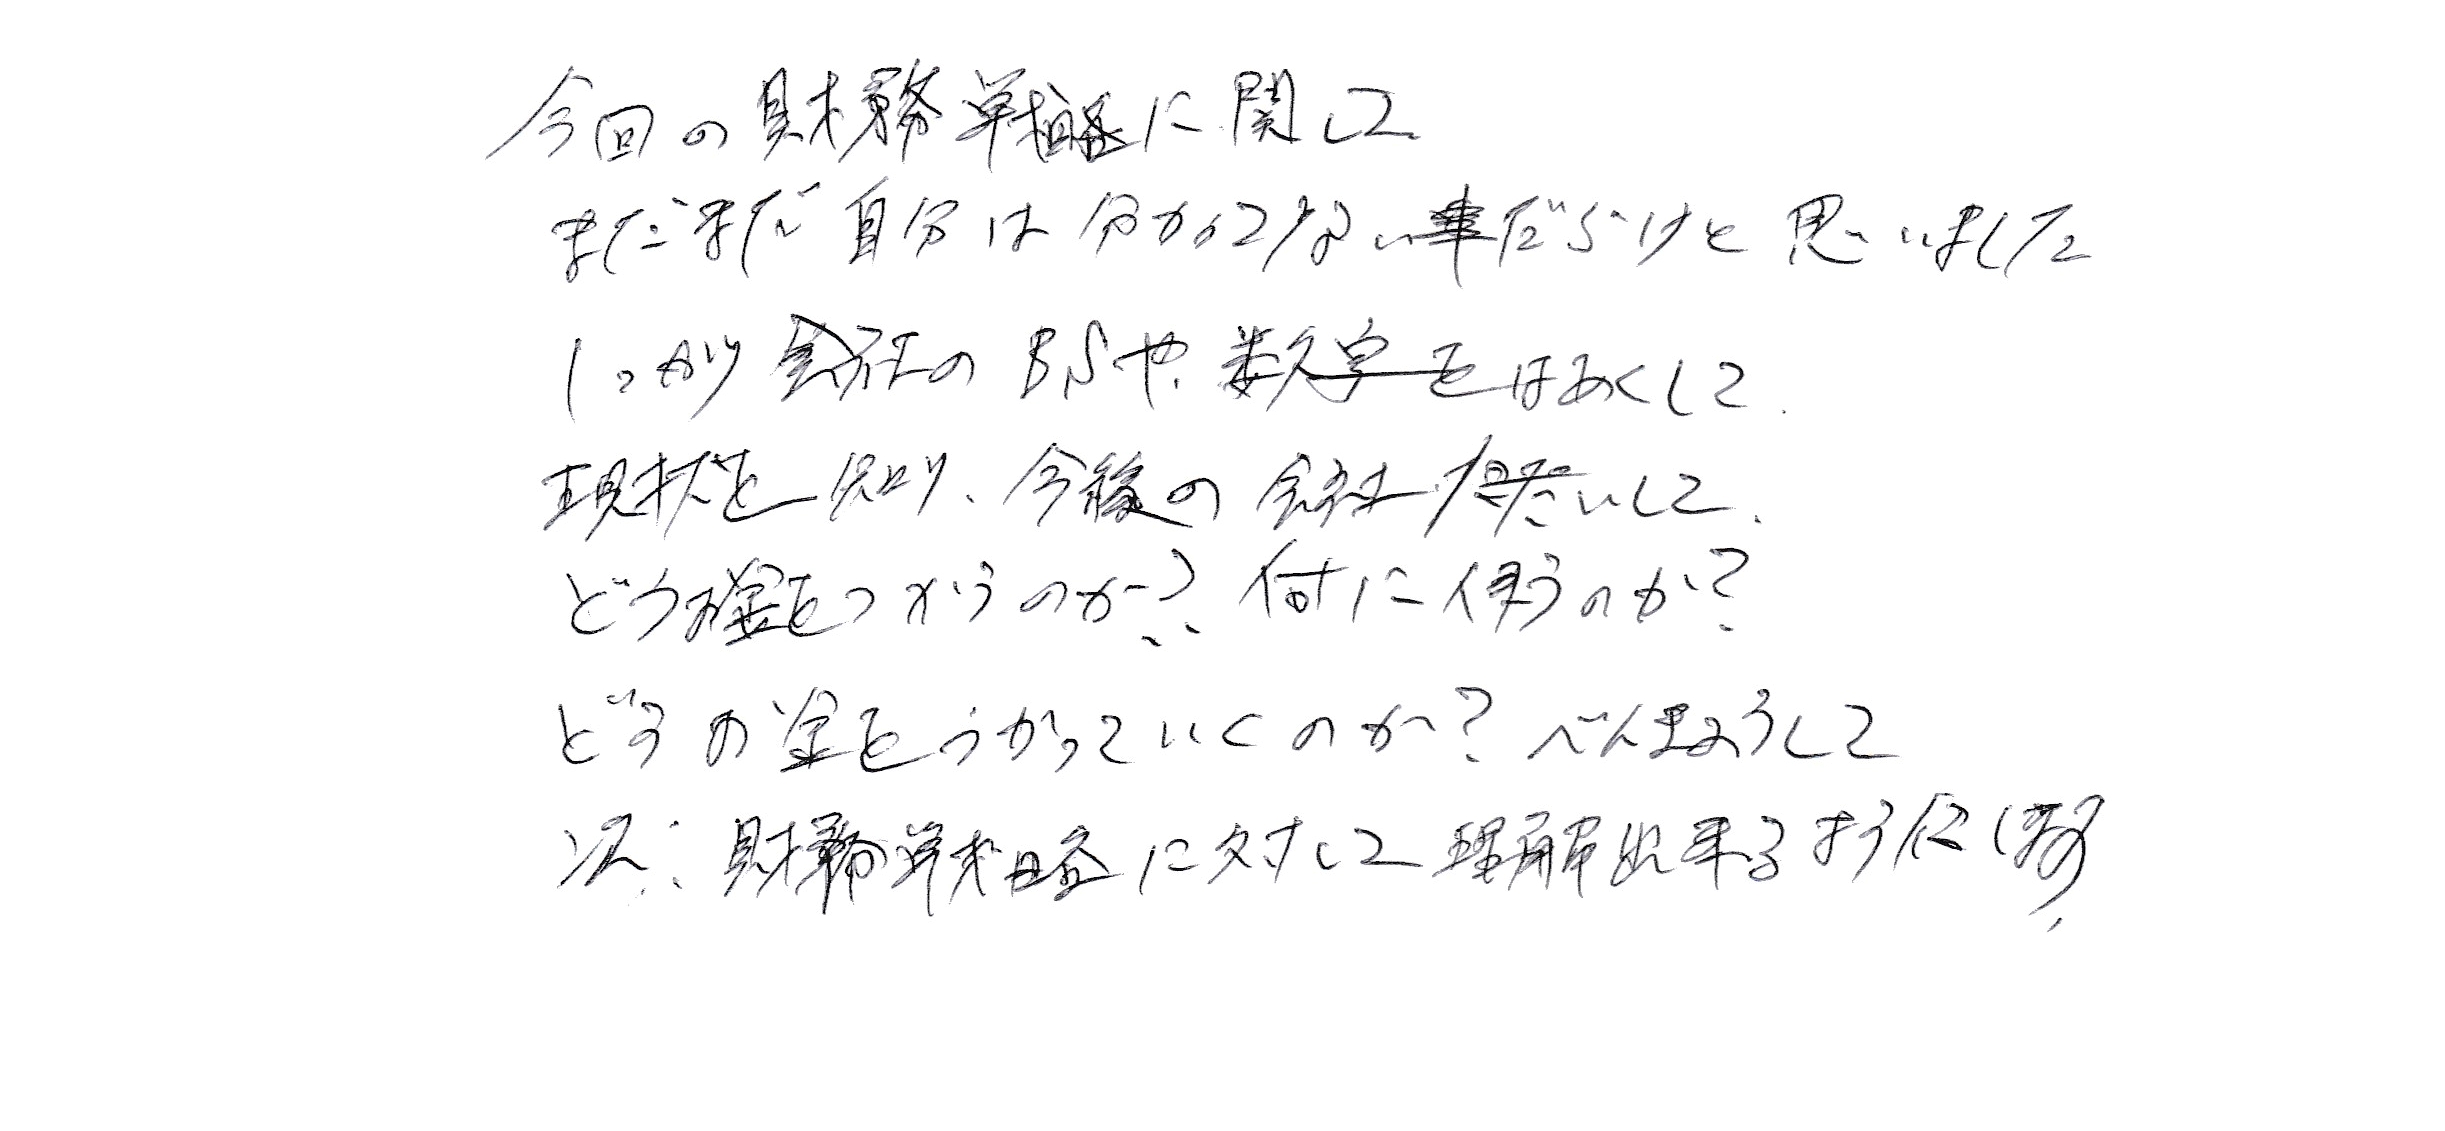 今回の財務戦略に関して
まだまだ自分は分かってない事だらけと思いました
しっかり会社のBSや、数字をはあくして、
現状を知り、今後の会社にたいして、
どうお金をつかうのか?何に使うのか?
どうお金をつかっていくのか?べんきょうして
次、財務戦略に対して理解出来るように